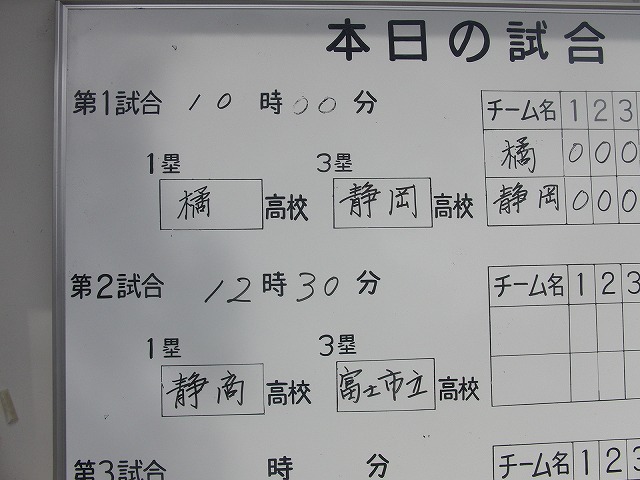 本日の試合
第1試合 10時00分
1塁 3塁
橘 高校 静岡 高校
チーム名 1 2 3
橘 0 0 0
静岡 0 0 0
第2試合 12時30分
1塁 3塁
静商 高校 富士市立 高校
チーム名 1 2 3
第3試合 時 分
チーム名 1 2 3